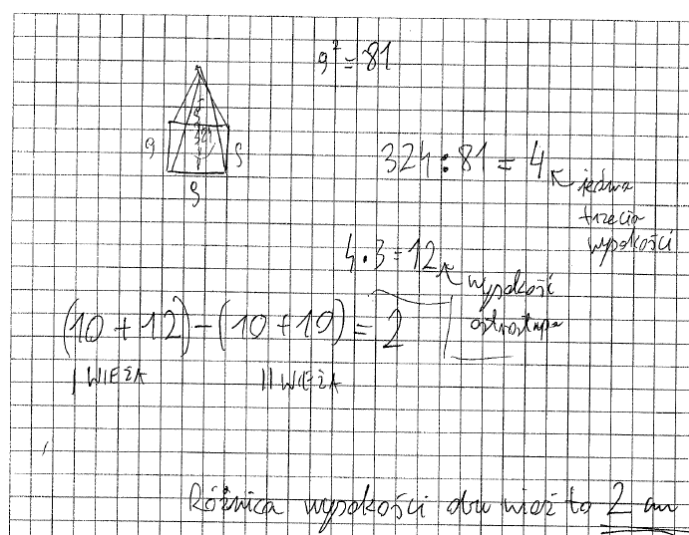 9² = 81
9
9
9
324 : 81 = 4
jedna
trzecia
wysokości
4 · 3 = 12
wysokość
ostrosłupa
(10 + 12) - (10 + 10) = 2
I WIEŻA
II WIEŻA
Różnica wysokości obu wież to 2 cm